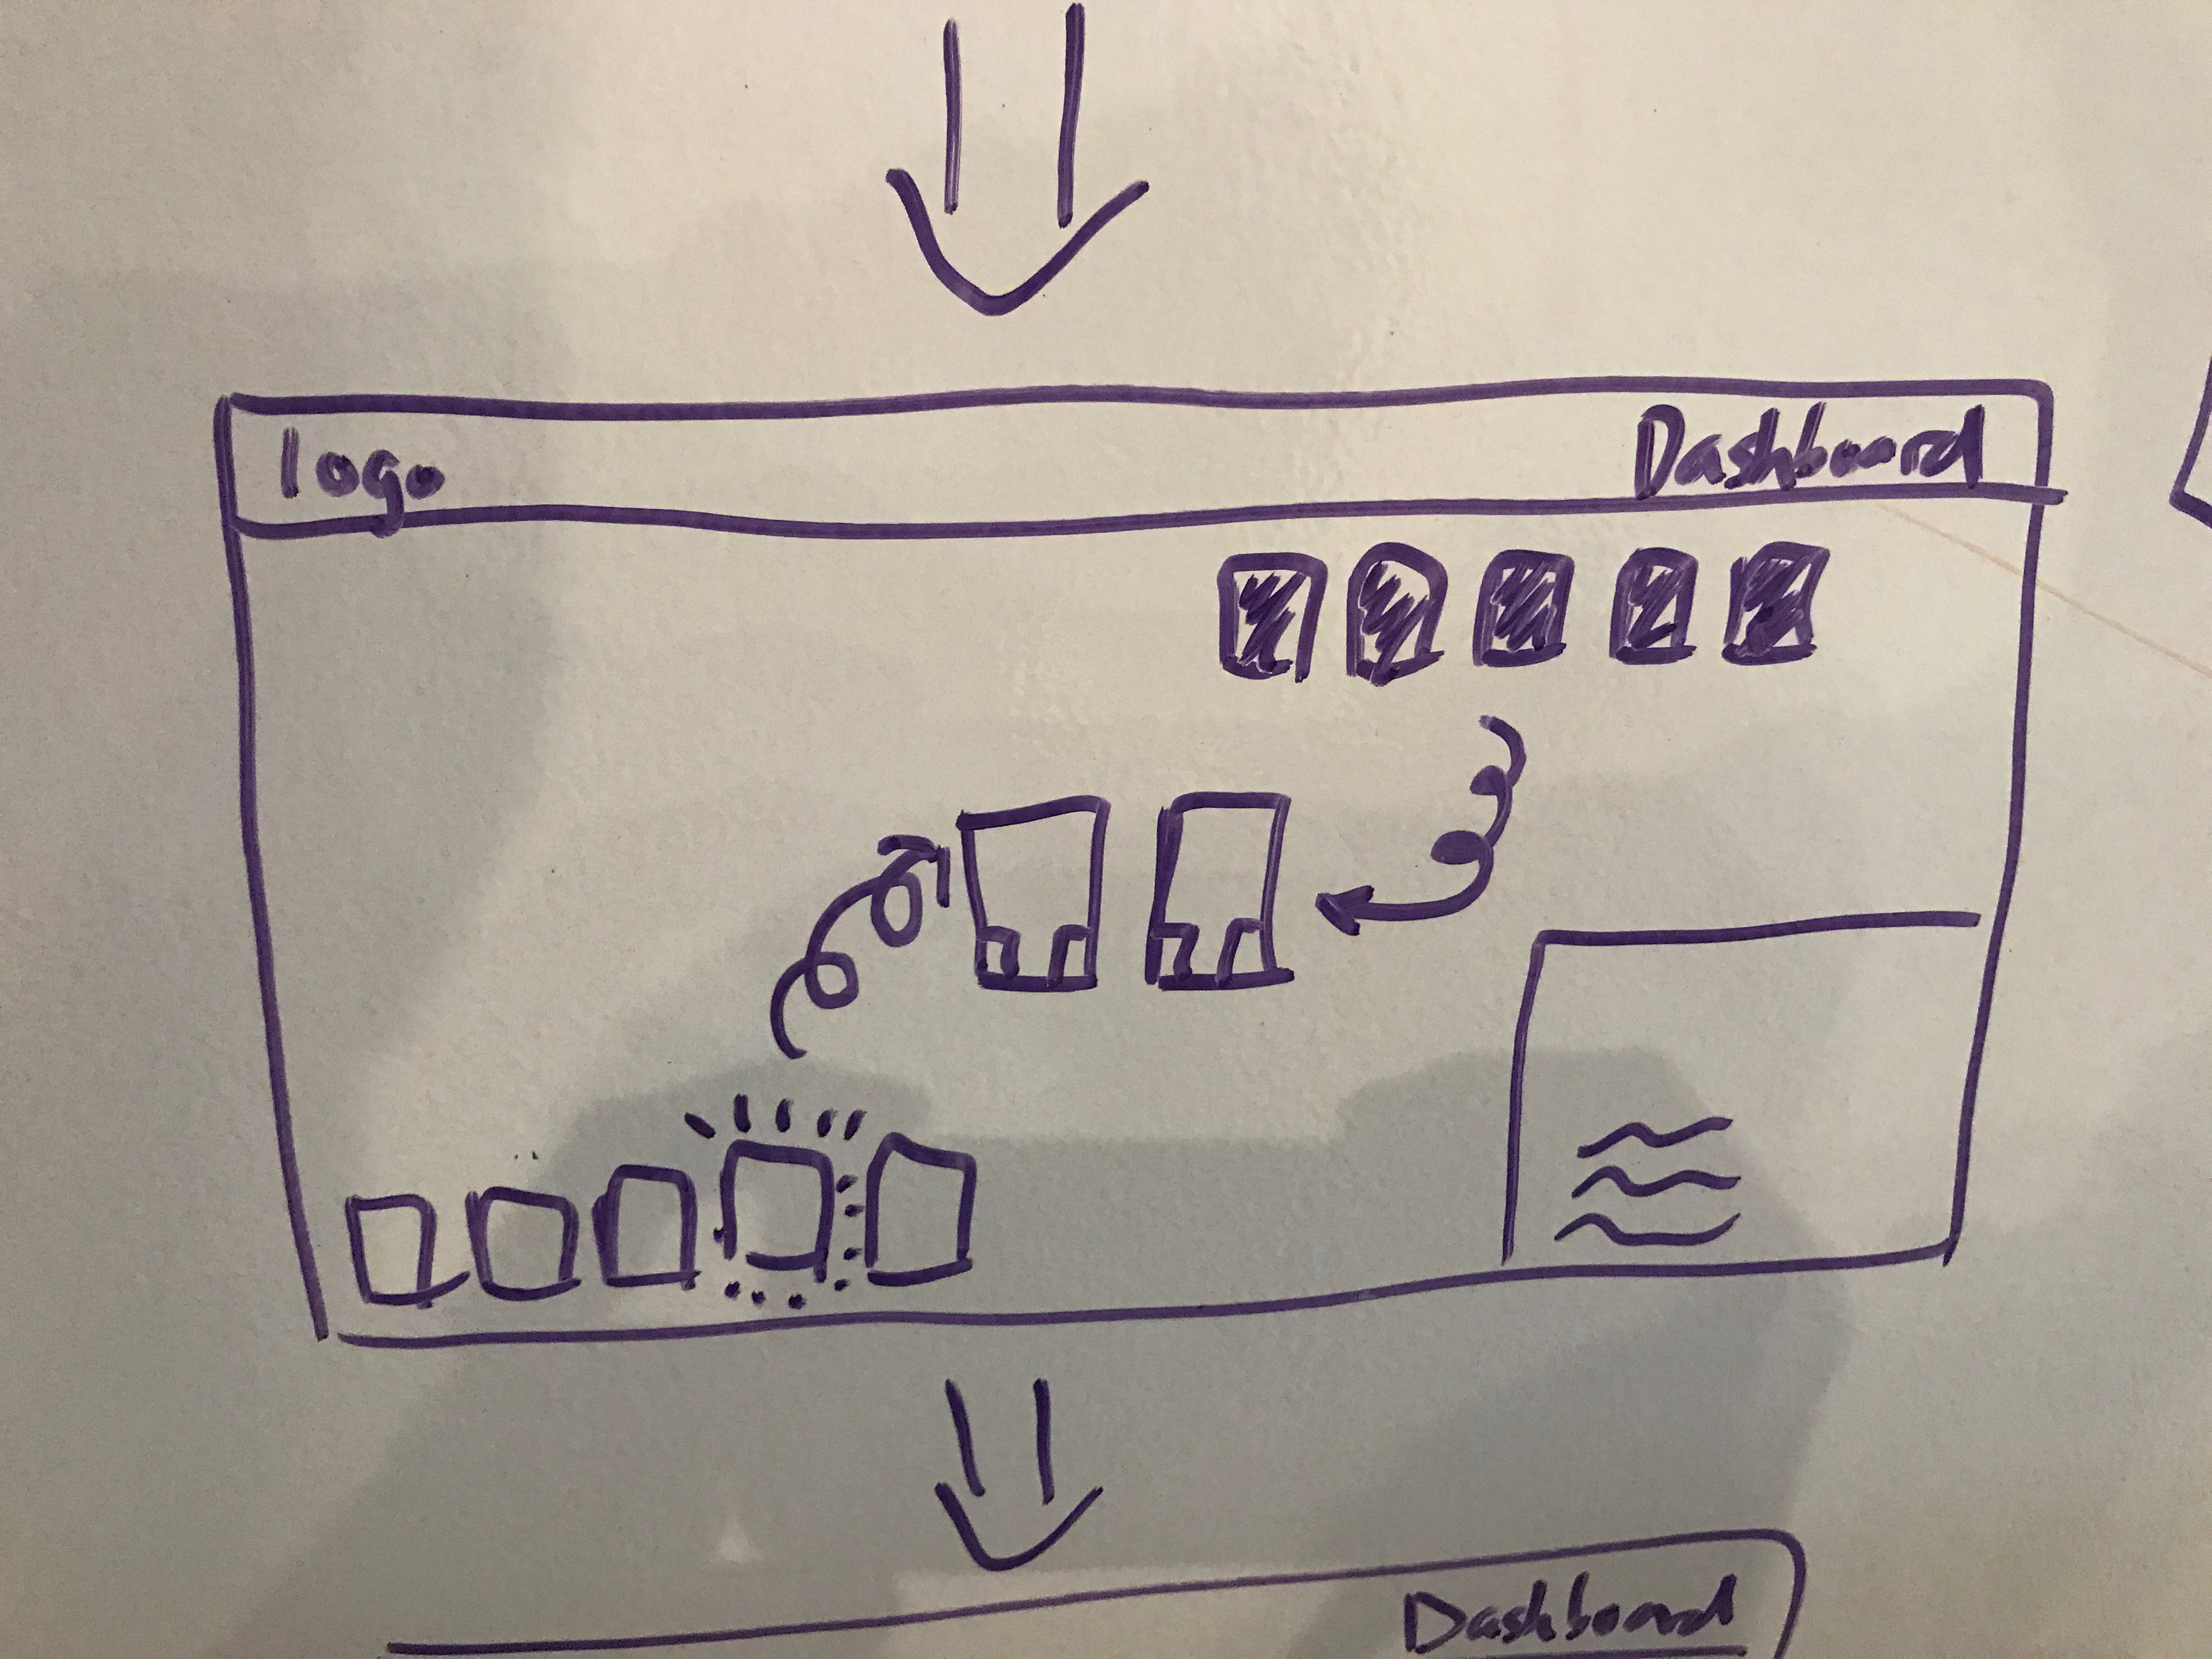 logo
Dashboard
Dashboard